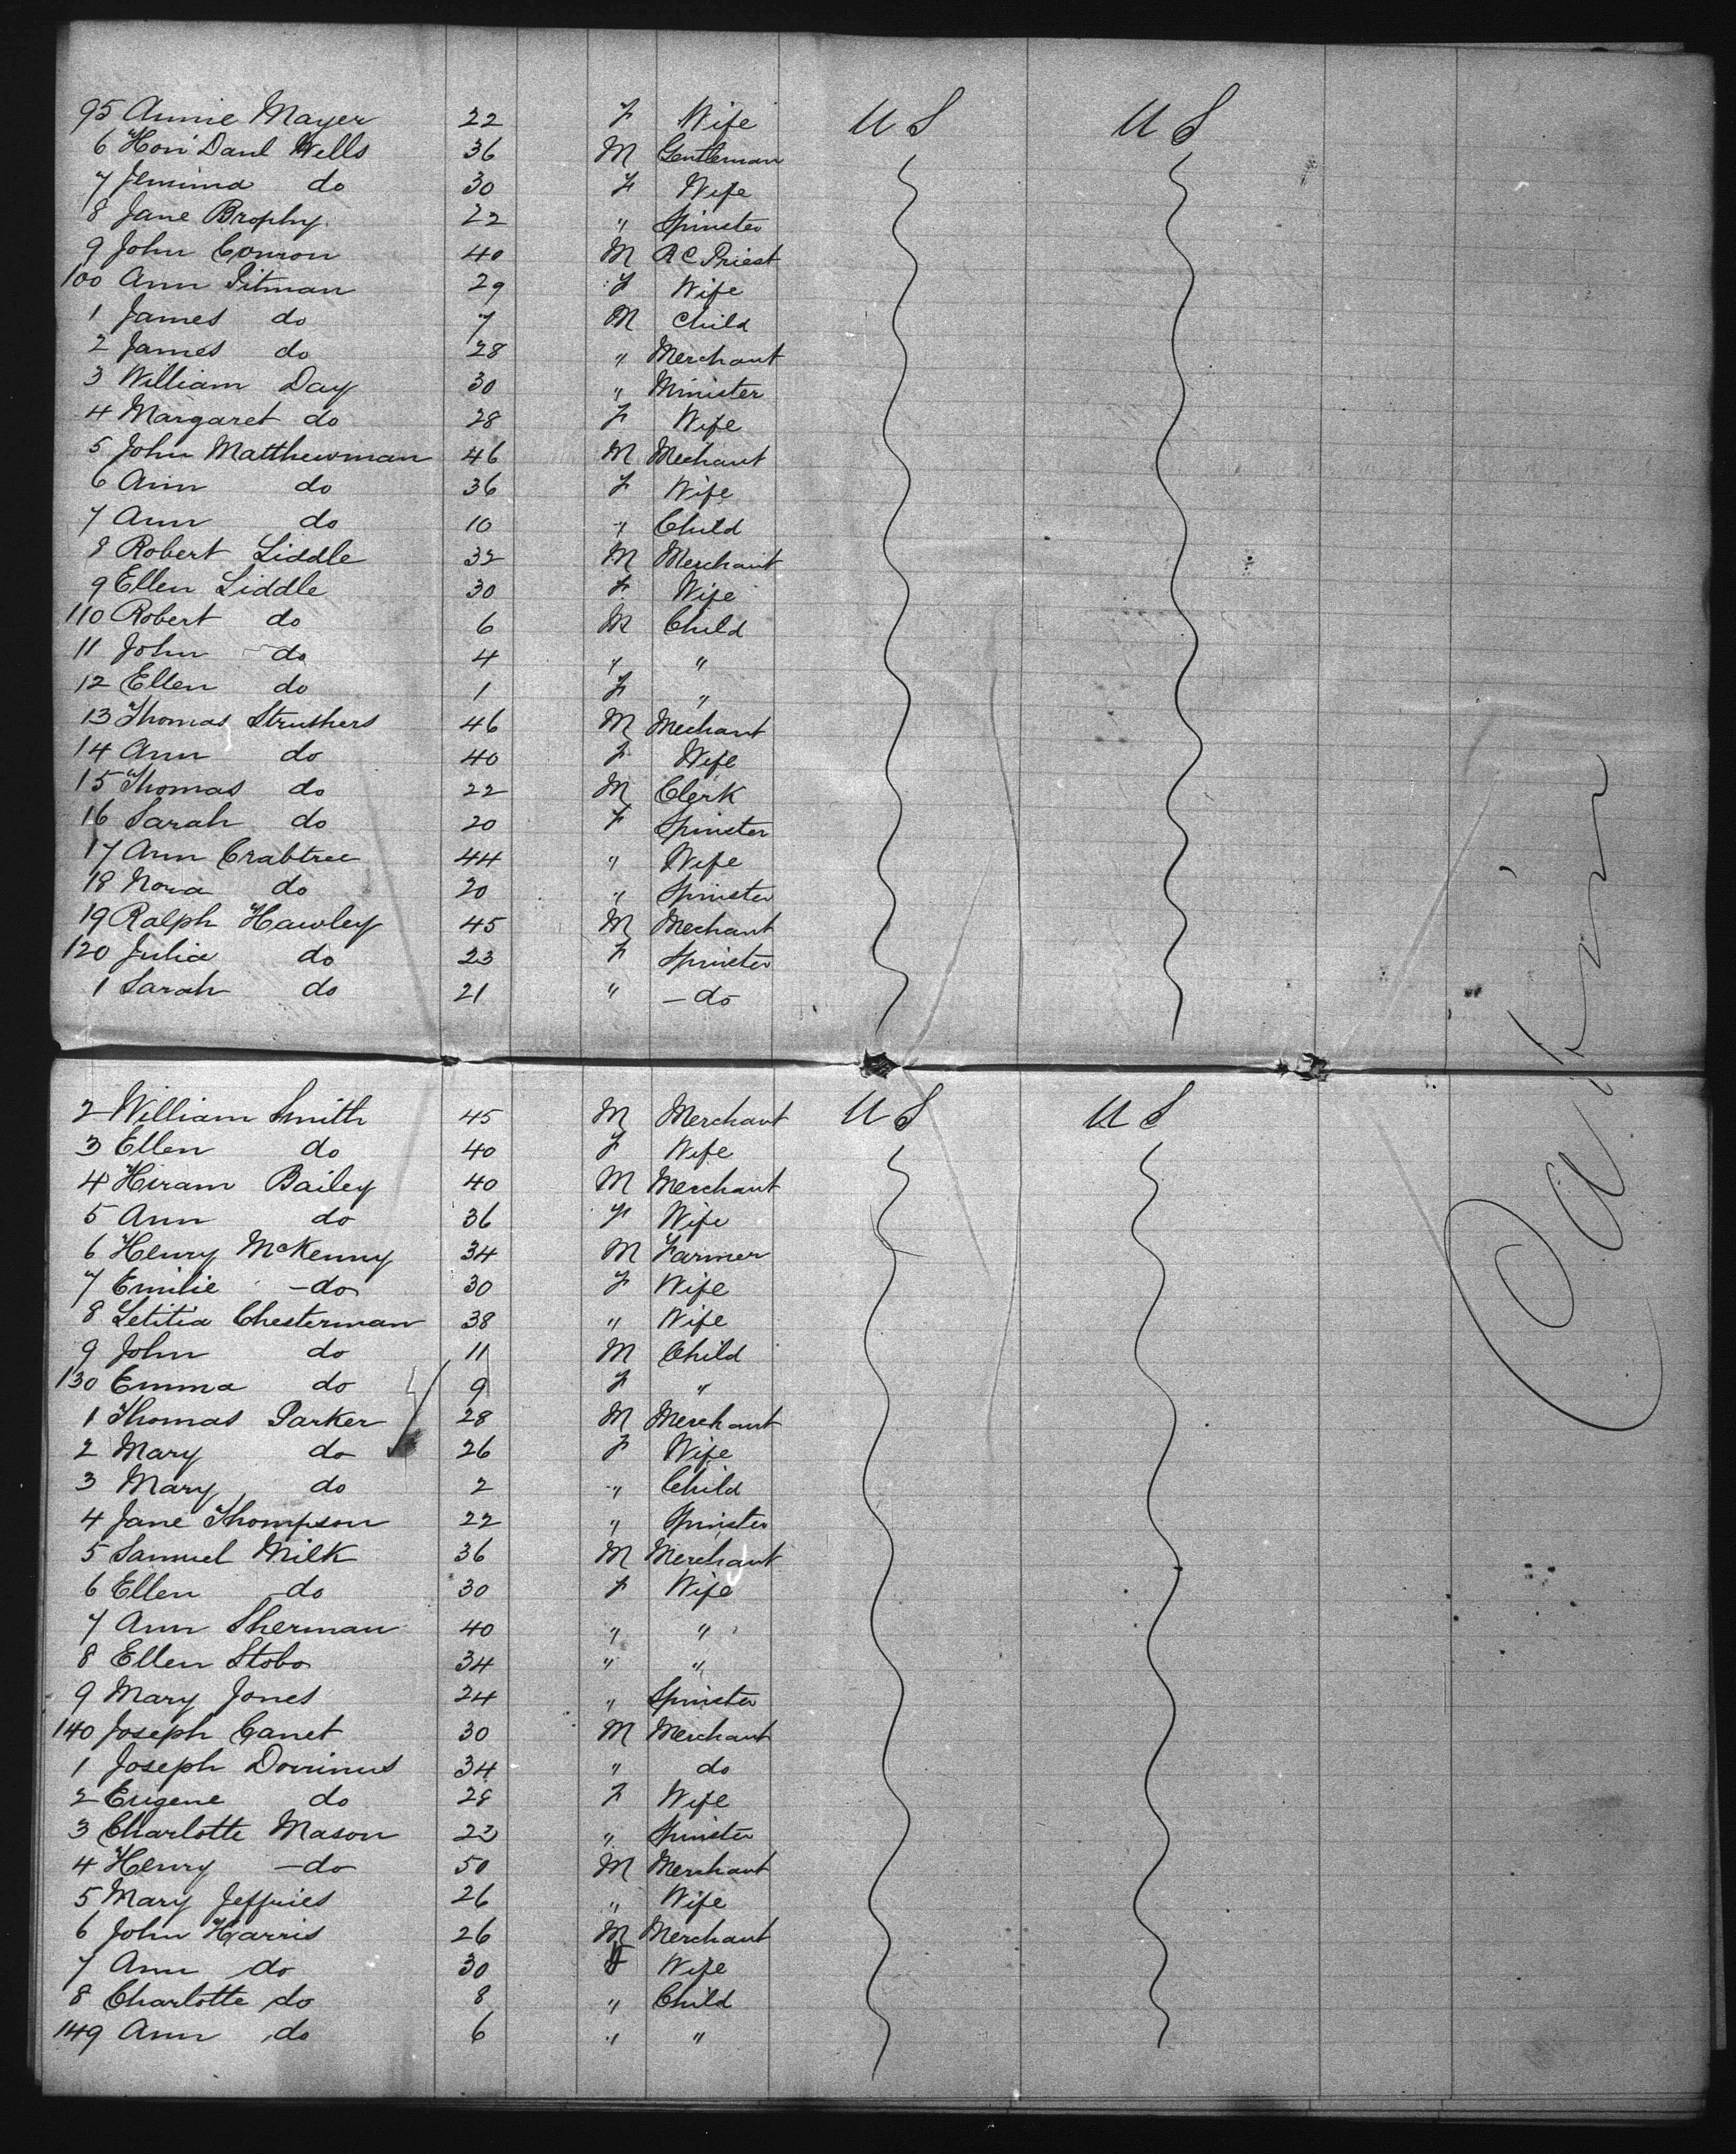 95 Annie Mayer 22 F Wife U S U S
6 Hon Danl Wells 36 M Gentleman
7 Jemima do 30 F Wife
8 Jane Brophy 22 " Spinster
9 John Conron 40 M R C Priest
100 Ann Pitman 29 F Wife
1 James do 7 M Child
2 James do 28 " Merchant
3 William Day 30 " Minister
4 Margaret do 28 F Wife
5 John Matthewman 46 M Mechant
6 Ann do 36 F Wife
7 Ann do 10 " Child
8 Robert Liddle 32 M Merchant
9 Ellen Liddle 30 F Wife
110 Robert do 6 M Child
11 John do 4 " "
12 Ellen do 1 F "
13 Thomas Struthers 46 M Mechant
14 Ann do 40 F Wife
15 Thomas do 22 M Clerk
16 Sarah do 20 F Spinster
17 Ann Crabtree 44 " Wife
18 Nora do 20 " Spinster
19 Ralph Hawley 45 M Mechant
120 Julia do 23 F Spinster
1 Sarah do 21 " - do
2 William Smith 45 M Merchant U S U S
3 Ellen do 40 F Wife
4 Hiram Bailey 40 M Merchant
5 Ann do 36 F Wife
6 Henry McKenny 34 M Farmer
7 Emilie - do 30 F Wife
8 Letitia Chesterman 38 " Wife
9 John do 11 M Child
130 Emma do 9 F "
1 Thomas Parker 28 M Merchant
2 Mary do 26 F Wife
3 Mary do 2 " Child
4 Jane Thompson 22 " Spinster
5 Samuel Milk 36 M Merchant
6 Ellen do 30 F Wife
7 Ann Sherman 40 " "
8 Ellen Stobo 34 " "
9 Mary Jones 24 " Spinster
140 Joseph Canet 30 M Merchant
1 Joseph Dominus 34 " do
2 Eugene do 28 F Wife
3 Charlotte Mason 23 " Spinster
4 Henry - do 50 M Merchant
5 Mary Jeffries 26 " Wife
6 John Harris 26 M Merchant
7 Ann do 30 F Wife
8 Charlotte do 8 " Child
149 Ann do 6 " "
Cabin